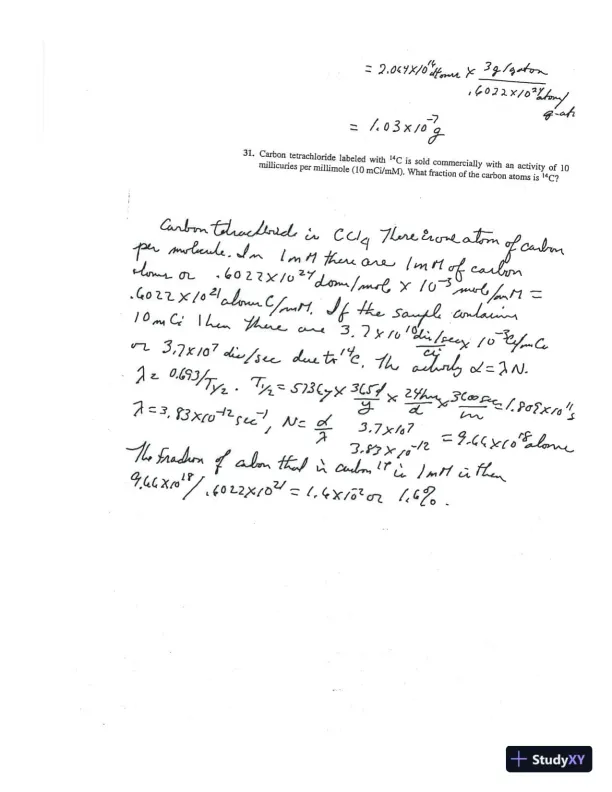 = 2.064X10^16 atoms X 3g/gatom / .6022X10^24 atom/g-at
= 1.03X10^-7 g
31. Carbon tetrachloride labeled with ¹⁴C is sold commercially with an activity of 10
millicuries per millimole (10 mCi/mM). What fraction of the carbon atoms is ¹⁴C?
Carbon tetrachloride is CCl4 There is one atom of carbon
per molecule. In 1mM there are 1mM of carbon
atoms or .6022X10^24 atoms/mole X 10^-3 mole/mM =
.6022X10^21 atoms C/mM. If the sample contains
10mCi then there are 3.7X10^10 dis/sec/Ci x 10^-3 Ci/mCi
or 3.7X10^7 dis/sec due to ¹⁴C. The activity α=λN.
λ= 0.693/T1/2. T1/2 = 5736y X 365d/y X 24hrs/d X 3600sec/hr = 1.809X10^11 s
λ=3.83X10^-12 sec^-1, N= α/λ 3.7X10^7 / 3.83X10^-12 = 9.66X10^18 atoms
The fraction of carbon that is carbon 14 in 1mM is then
9.66X10^18/.6022X10^21 = 1.6X10^-2 or 1.6%.
StudyXY